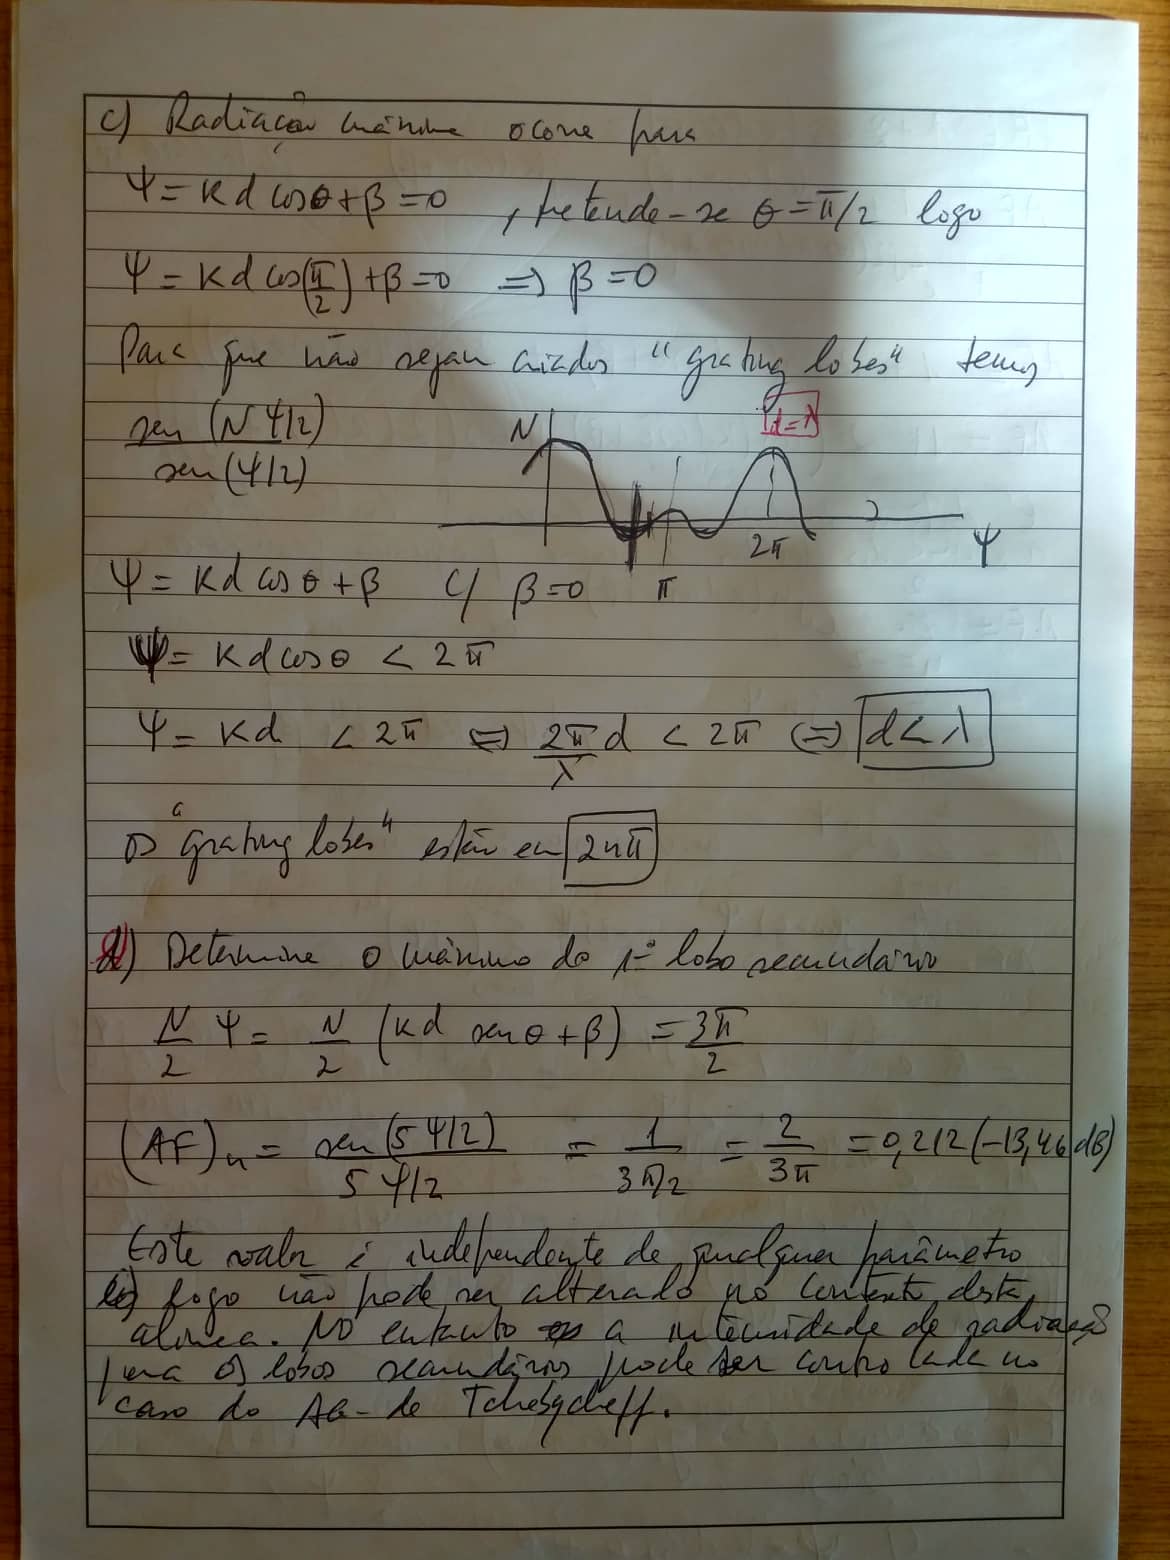 c) Radiação máxima ocorre para
Ψ = Kd cosθ + β = 0 , pretende-se θ = π/2 logo
Ψ = Kd cos(π/2) + β = 0 ⇒ β = 0
Para que não sejam criados "grating lobes" temos
sen (NΨ/2) / sen (Ψ/2)
N
d=λ
π
2π
Ψ
Ψ = Kd cosθ + β c/ β=0
Ψ = Kd cosθ < 2π
Ψ = Kd < 2π ⇔ 2π/λ d < 2π ⇔ d < λ
os "grating lobes" estão em 2nπ
d) Determine o máximo do 1º lobo secundário
N/2 Ψ = N/2 (Kd senθ + β) = 3π/2
(AF)n = sen(5Ψ/2) / 5Ψ/2 = 1 / 3π/2 = 2/3π = 0,212 (-13,46 dB)
Este valor é independente de qualquer parâmetro
e) logo não pode ser alterado no contexto desta
alínea. No entanto a intensidade de radiação
para os lobos secundários pode ser controlada no
caso do AG- de Tchebycheff.